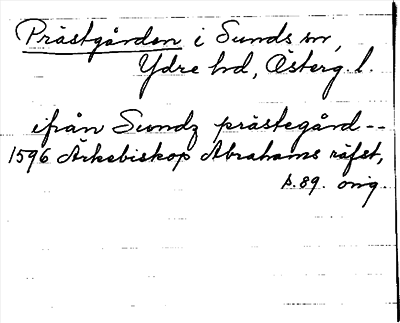 Prästgården i Sunds sn,
Ydre hd, Österg. l.
ifrån Sundz prästegård --
1596 Ärkebiskop Abrahams räfst,
s. 89. orig.